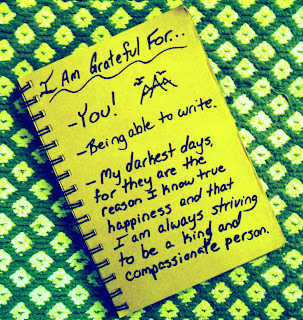 I Am Grateful For...
-You!
-Being able to write.
-My darkest days,
for they are the
reason I know true
happiness and that
I am always striving
to be a kind and
compassionate person.